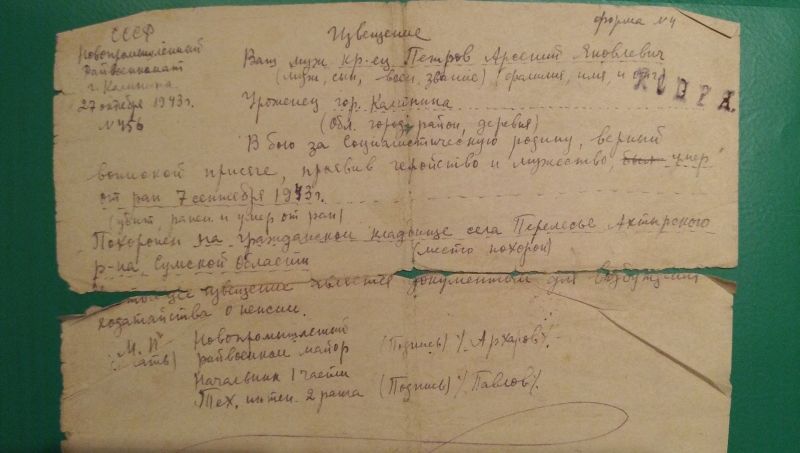 СССР
Извещение
форма №4
Новопромышленный
Райвоенкомат
г. Калинина
27 октября 1943 г.
№ 456
Ваш муж кр-ец Петров Арсений Яковлевич
(муж, сын, воен. звание) (фамилия, имя, и отч)
КОПИЯ.
Уроженец гор. Калинина
(Обл. город, район, деревня)
В бою за Социалистическую родину, верный
воинской присяге, проявив геройство и мужество, был умер
от ран 7 сентября 1943 г.
(убит, ранен и умер от ран)
Похоронен на гражданском кладбище села Перелесье Ахтырского
р-на Сумской области
(место похорон)
извещение является документом для возбуждения
ходатайства о пенсии.
М. П
Новопромышленный
райвоенком майор
(Подпись) /Архаров/.
Начальник 1 части
Тех. интен. 2 ранга
(Подпись) /Павлов/.